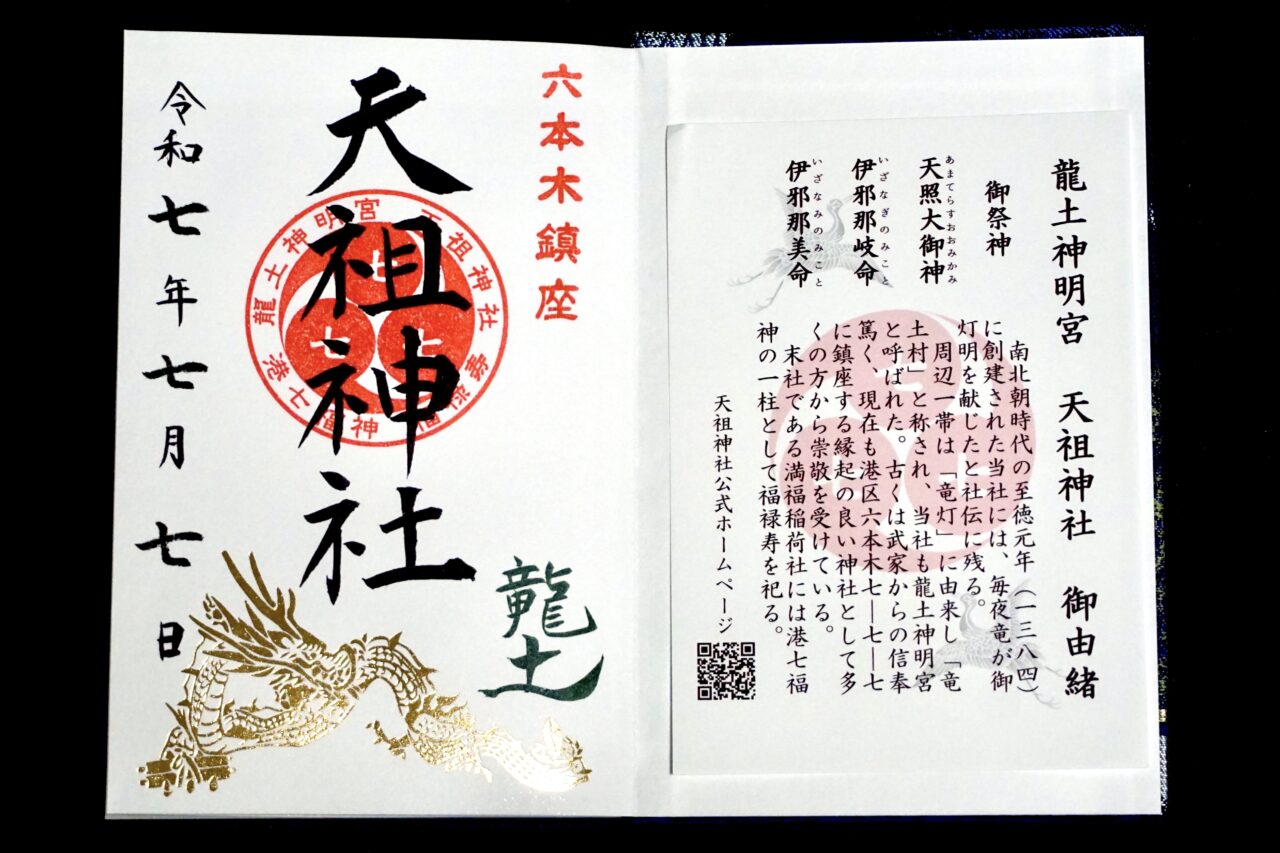 龍土神明宮　天祖神社　御由緒
御祭神
あまてらすおおみかみ
天照大御神
いざなぎのみこと
伊邪那岐命
いざなみのみこと
伊邪那美命
南北朝時代の至徳元年（一三八四）
に創建された当社には、毎夜竜が御
灯明を献じたと社伝に残る。
周辺一帯は「竜灯」に由来し「竜
土村」と称され、当社も龍土神明宮
と呼ばれた。古くは武家からの信奉
篤く、現在も港区六本木七―七―七
に鎮座する縁起の良い神社として多
くの方から崇敬を受けている。
末社である満福稲荷社には港七福
神の一柱として福禄寿を祀る。
天祖神社公式ホームページ
六本木鎮座
龍土
天祖神社
龍土神明宮
天祖神社
港七福神
令和七年七月七日